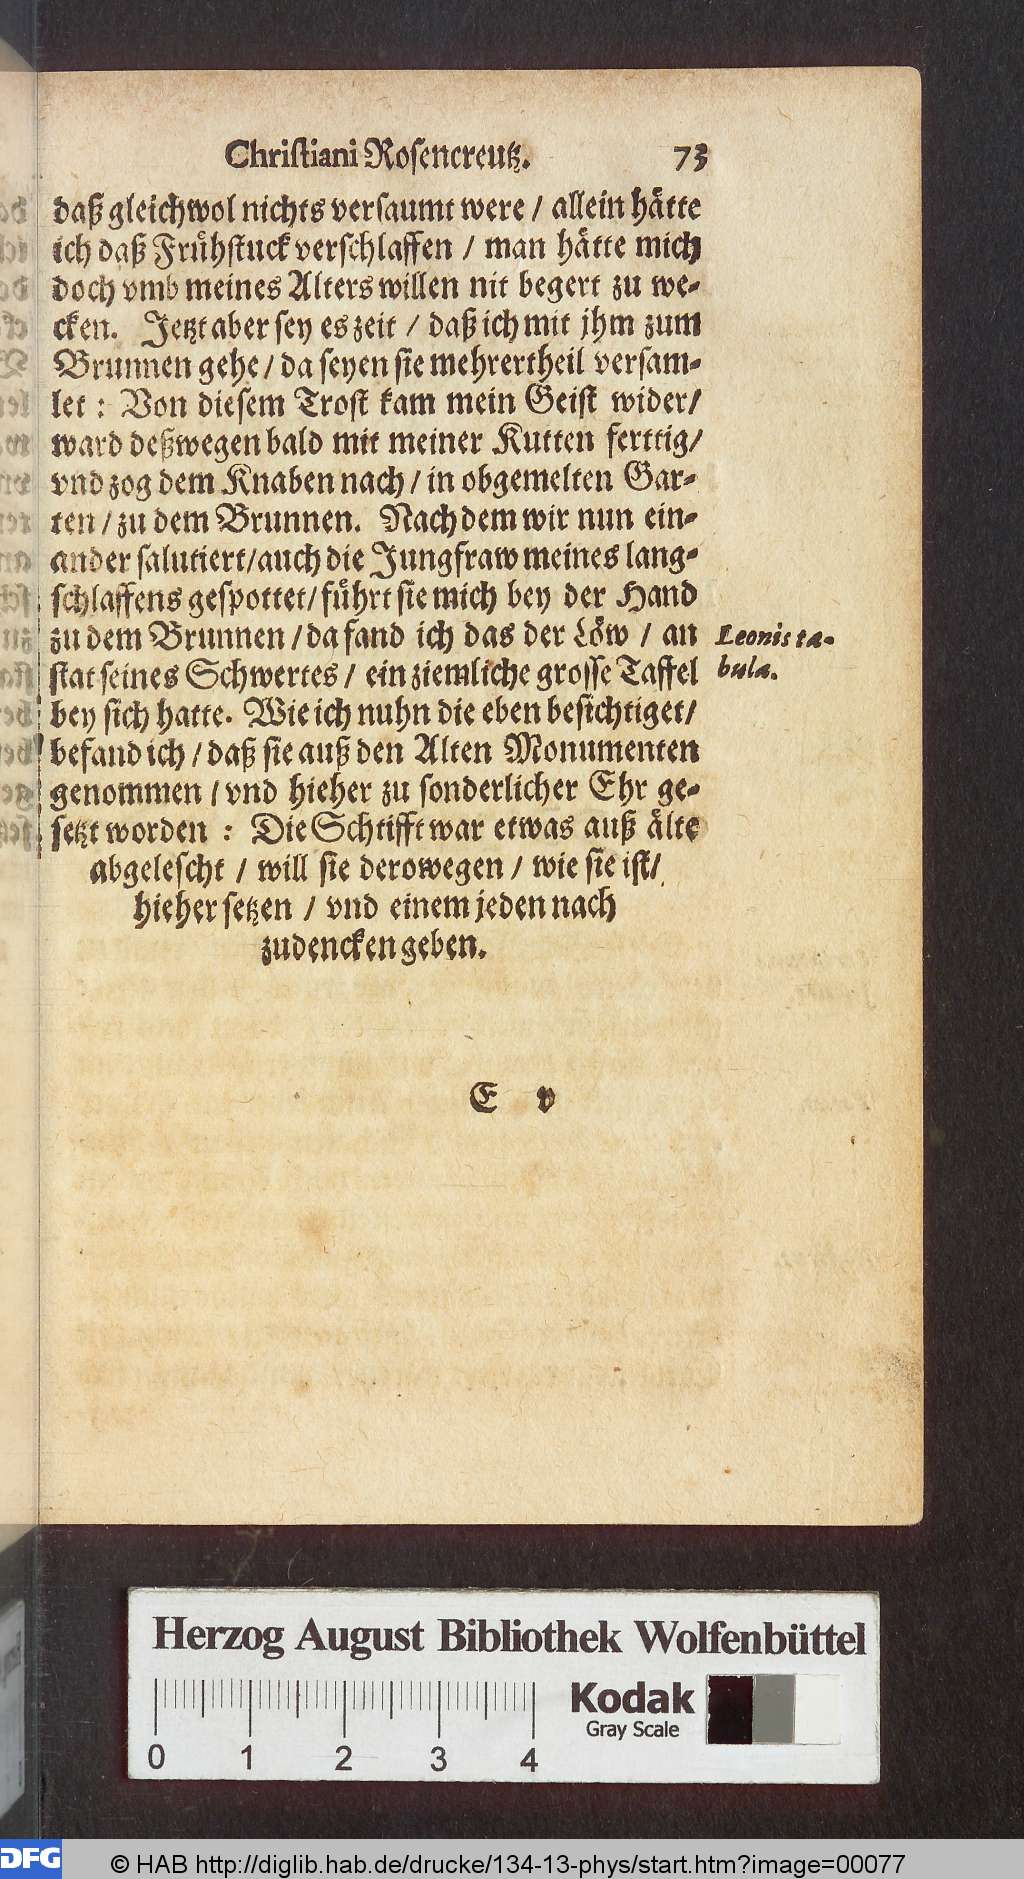 Chriſtiani Roſencreutz. 73
daß gleichwol nichts verſaumt were / allein hätte
ich daß Frühſtuck verſchlaffen / man hätte mich
doch vmb meines Alters willen nit begert zu we-
cken. Jetzt aber ſey es zeit / daß ich mit jhm zum
Brunnen gehe / da ſeyen ſie mehrertheil verſam-
let : Von dieſem Troſt kam mein Geiſt wider/
ward deßwegen bald mit meiner Kutten ferttig/
vnd zog dem Knaben nach / in obgemelten Gar-
ten / zu dem Brunnen. Nach dem wir nun ein-
ander ſalutiert/auch die Jungfraw meines lang-
ſchlaffens geſpottet/ führt ſie mich bey der Hand
zu dem Brunnen / da fand ich das der Löw / an
Leonis ta-
ſtat ſeines Schwertes / ein ziemliche groſſe Taffel
bula.
bey ſich hatte. Wie ich nuhn die eben beſichtiget/
befand ich / daß ſie auß den Alten Monumenten
genommen / vnd hieher zu ſonderlicher Ehr ge-
ſetzt worden : Die Schtifft war etwas auß älte
abgeleſcht / will ſie derowegen / wie ſie iſt/
hieher ſetzen / vnd einem jeden nach
zudencken geben.
E v
Herzog August Bibliothek Wolfenbüttel
Kodak
Gray Scale
0 1 2 3 4
DFG
© HAB http://diglib.hab.de/drucke/134-13-phys/start.htm?image=00077